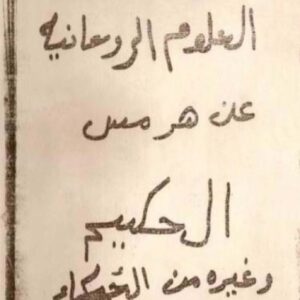 العلوم الروحانيه
عن هرمس
الحكيم
وغيره من الحكماء